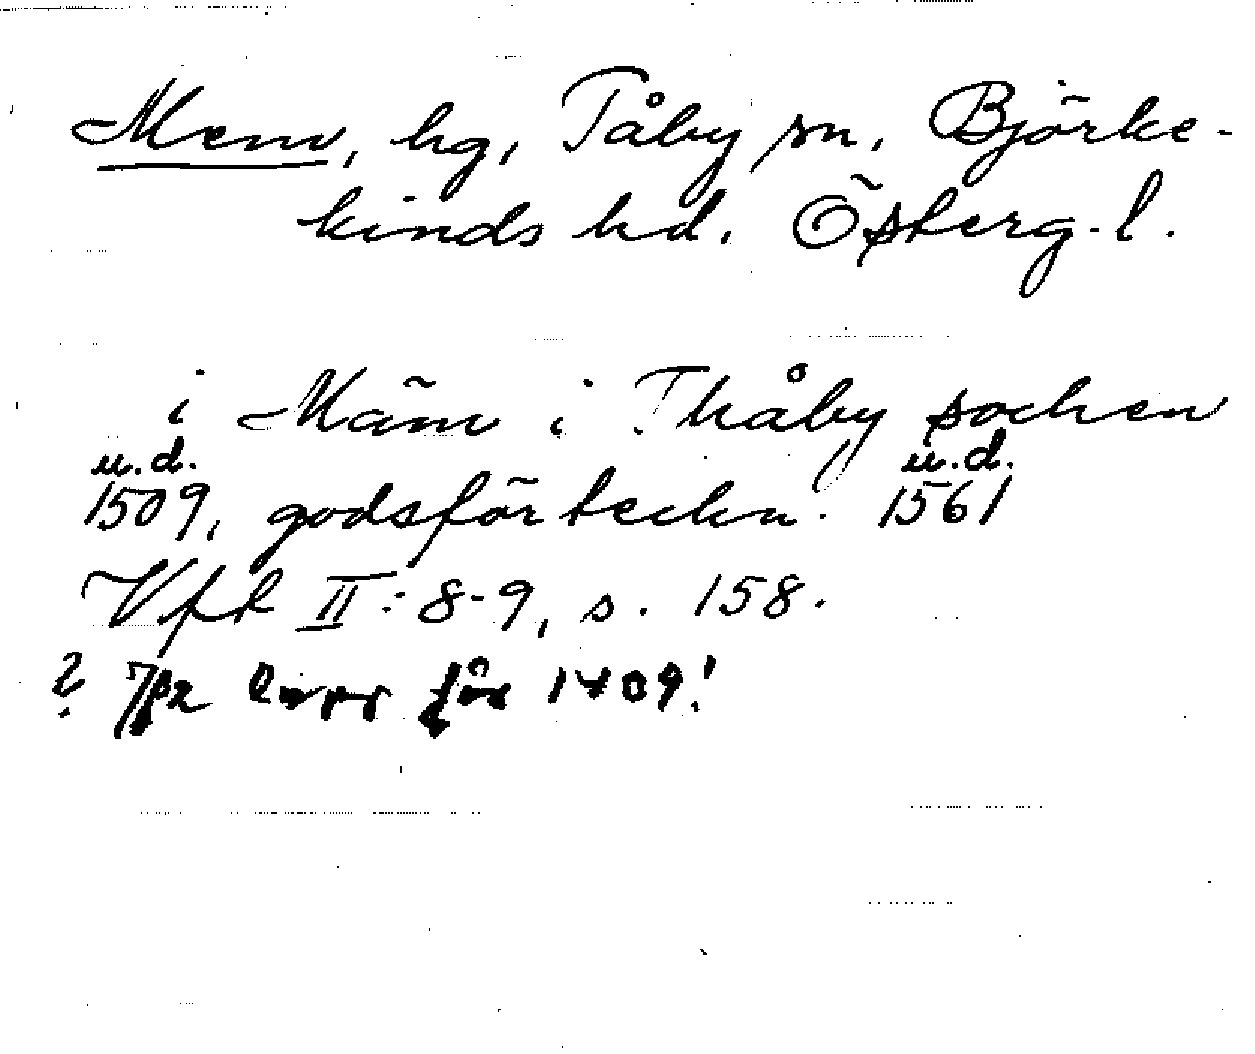 Mem, hg, Tåby sn, Björke-
kinds hd. Österg. l.
i Mäm i Thåby sochen
u.d. u.d.
1509, godsförteckn. 1561
Vfk II: 8-9, s. 158.
? för 1409!